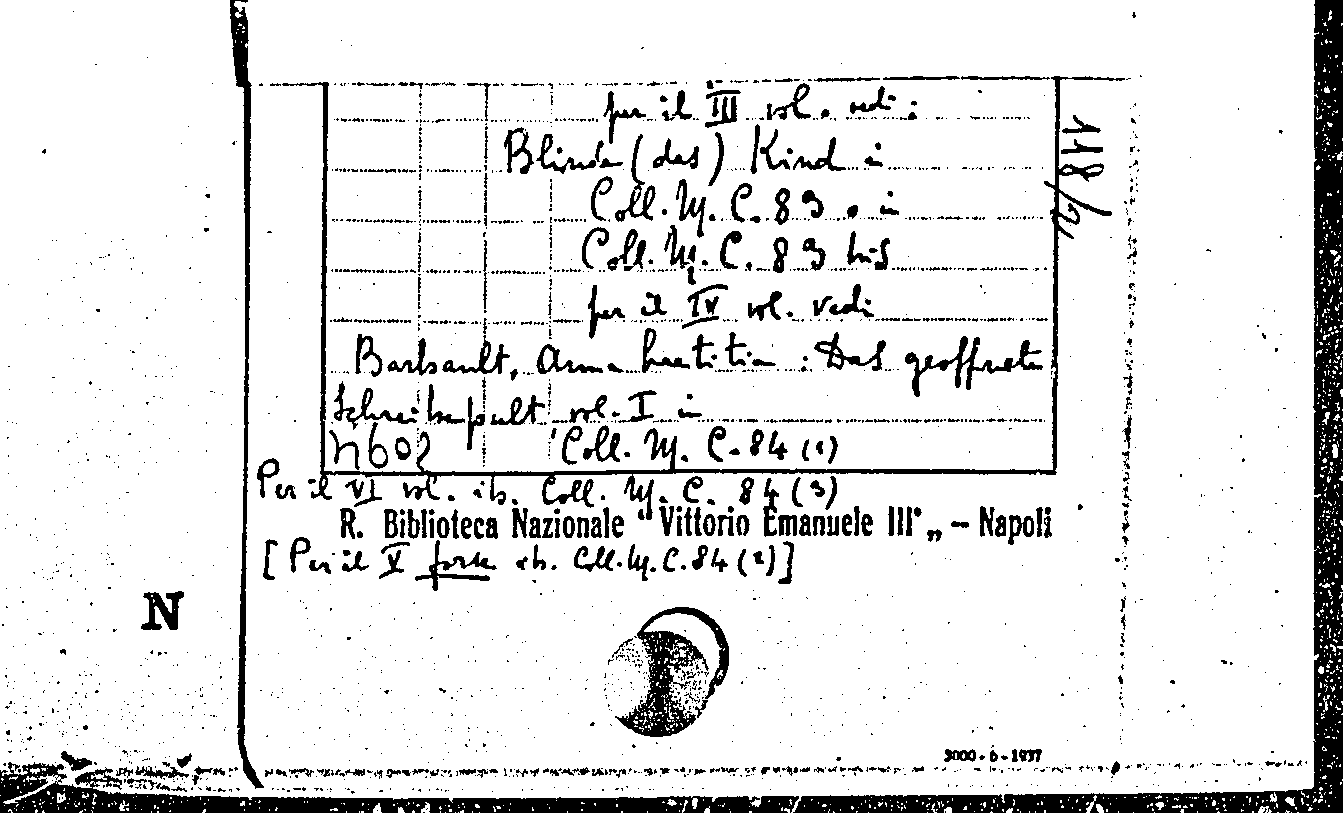 per il III vol. vedi:
Blinde (das) Kind in
Coll. M. C. 83 o in
Coll. M. C. 83 bis
per il IV vol. vedi
Barbault, Anna Laetitia: Das geöffnete
Schreibepult vol. I in
Coll. M. C. 84 (1)
Per il VI vol. ib. Coll. M. C. 84 (3)
R. Biblioteca Nazionale "Vittorio Emanuele III„ – Napoli
[Per il V forse ib. Coll. M. C. 84 (2)]
N
3000 - 6 - 1937